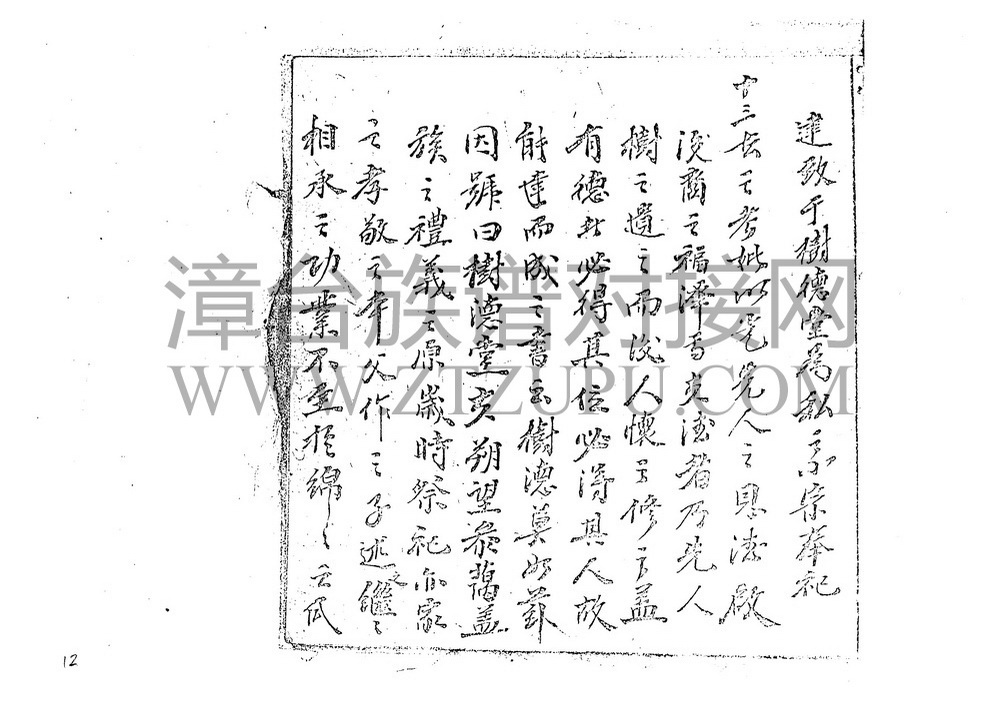 建致于樹德堂為私之小宗奉祀
十三長之考妣以是先人之恩德啟
後裔之福澤焉夫德者乃先人
樹之遺之而後人懷之修之蓋
有德者必得其位必得其人故
能達而成之書云樹德莫如
因號曰樹德堂矣朔望恭謁盖
族之禮義之原歲時祭祀亦家
之孝敬之本父作之子述之繼之
相承之功業不墜於綿之之瓜
漳台族谱对接网
WWW.ZTZUPU.COM
12